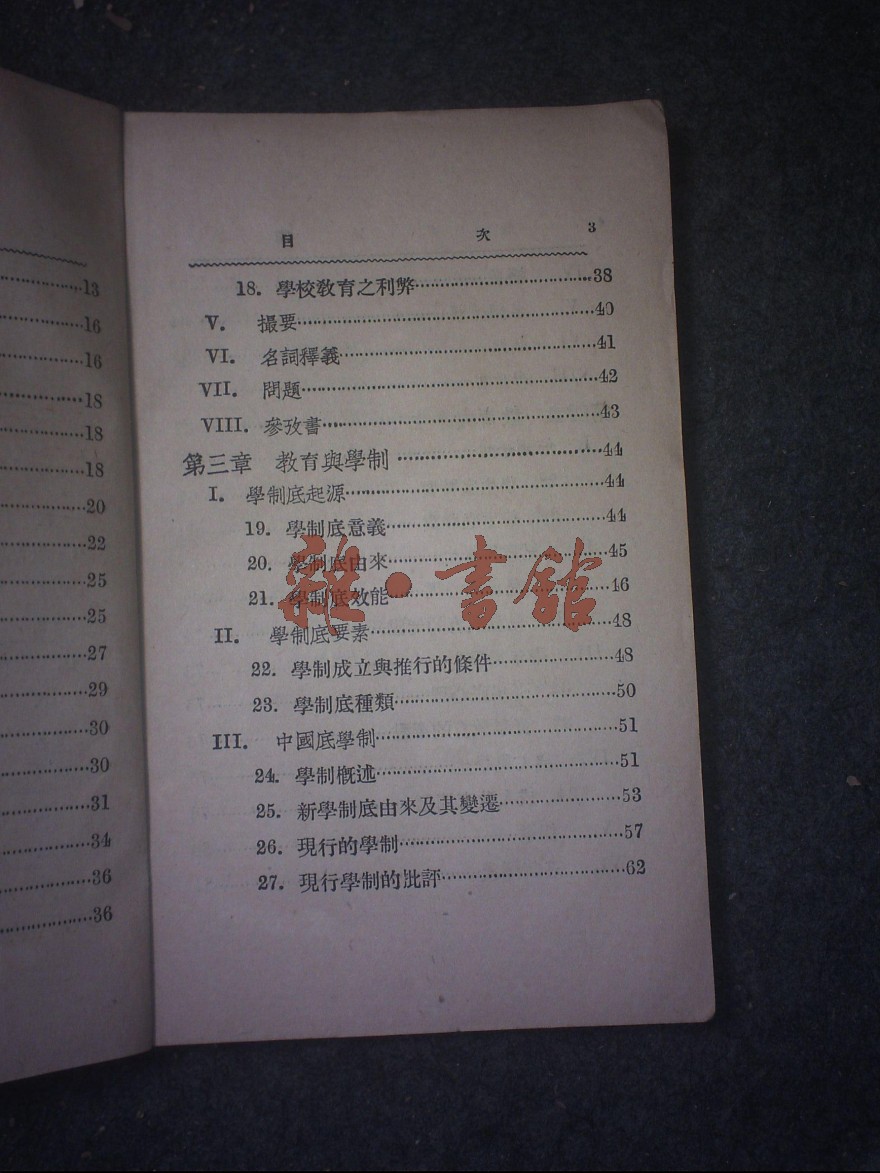 13
16
16
18
18
18
20
22
25
25
27
29
30
30
31
34
36
36
目 次 3
18. 學校敎育之利弊……38
V. 撮要……40
VI. 名詞釋義……41
VII. 問題……42
VIII. 參攷書……43
第三章 教育與學制……44
I. 學制底起源……44
19. 學制底意義……44
20. 學制底由來……45
21. 學制底效能……46
II. 學制底要素……48
22. 學制成立與推行的條件……48
23. 學制底種類……50
III. 中國底學制……51
24. 學制槪述……51
25. 新學制底由來及其變遷……53
26. 現行的學制……57
27. 現行學制的批評……62
雜·書館